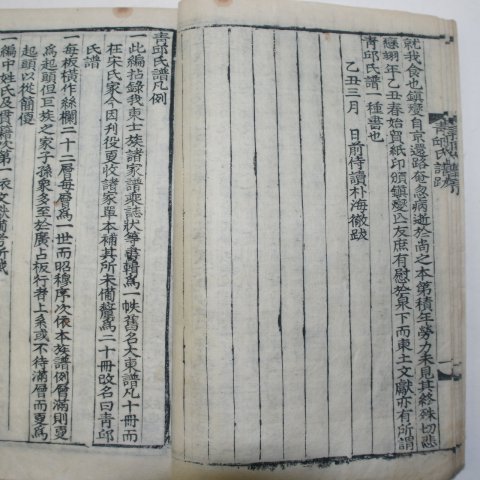 就我食也鎮燮自京還路奄忽病逝於尚之本第積年勞力未見其終殊切悲
戀翌年乙丑春始貿紙印頒鎮燮以友庶有慰於泉下而東土文獻亦有所謂
青邱氏譜一種書也
乙丑三月 日前侍讀朴海徹跋
青邱氏譜跋
青邱氏譜凡例
一此編拈錄我東士族諸家譜乘誌狀等書輯爲一帙舊名大東譜凡十冊而
在宋氏家今因刋役更收諸家單本補其所未備釐爲二十冊改名曰青邱
氏譜
一每板橫作絲欄二十二層每層爲一世而昭穆序次依本族譜例層滿則更
爲起頭但巨族之家子孫衆多至於廣占板行者上系或不待滿層而更爲
起頭以從簡便
一編中姓氏及貫籍次第一依文獻備考所載